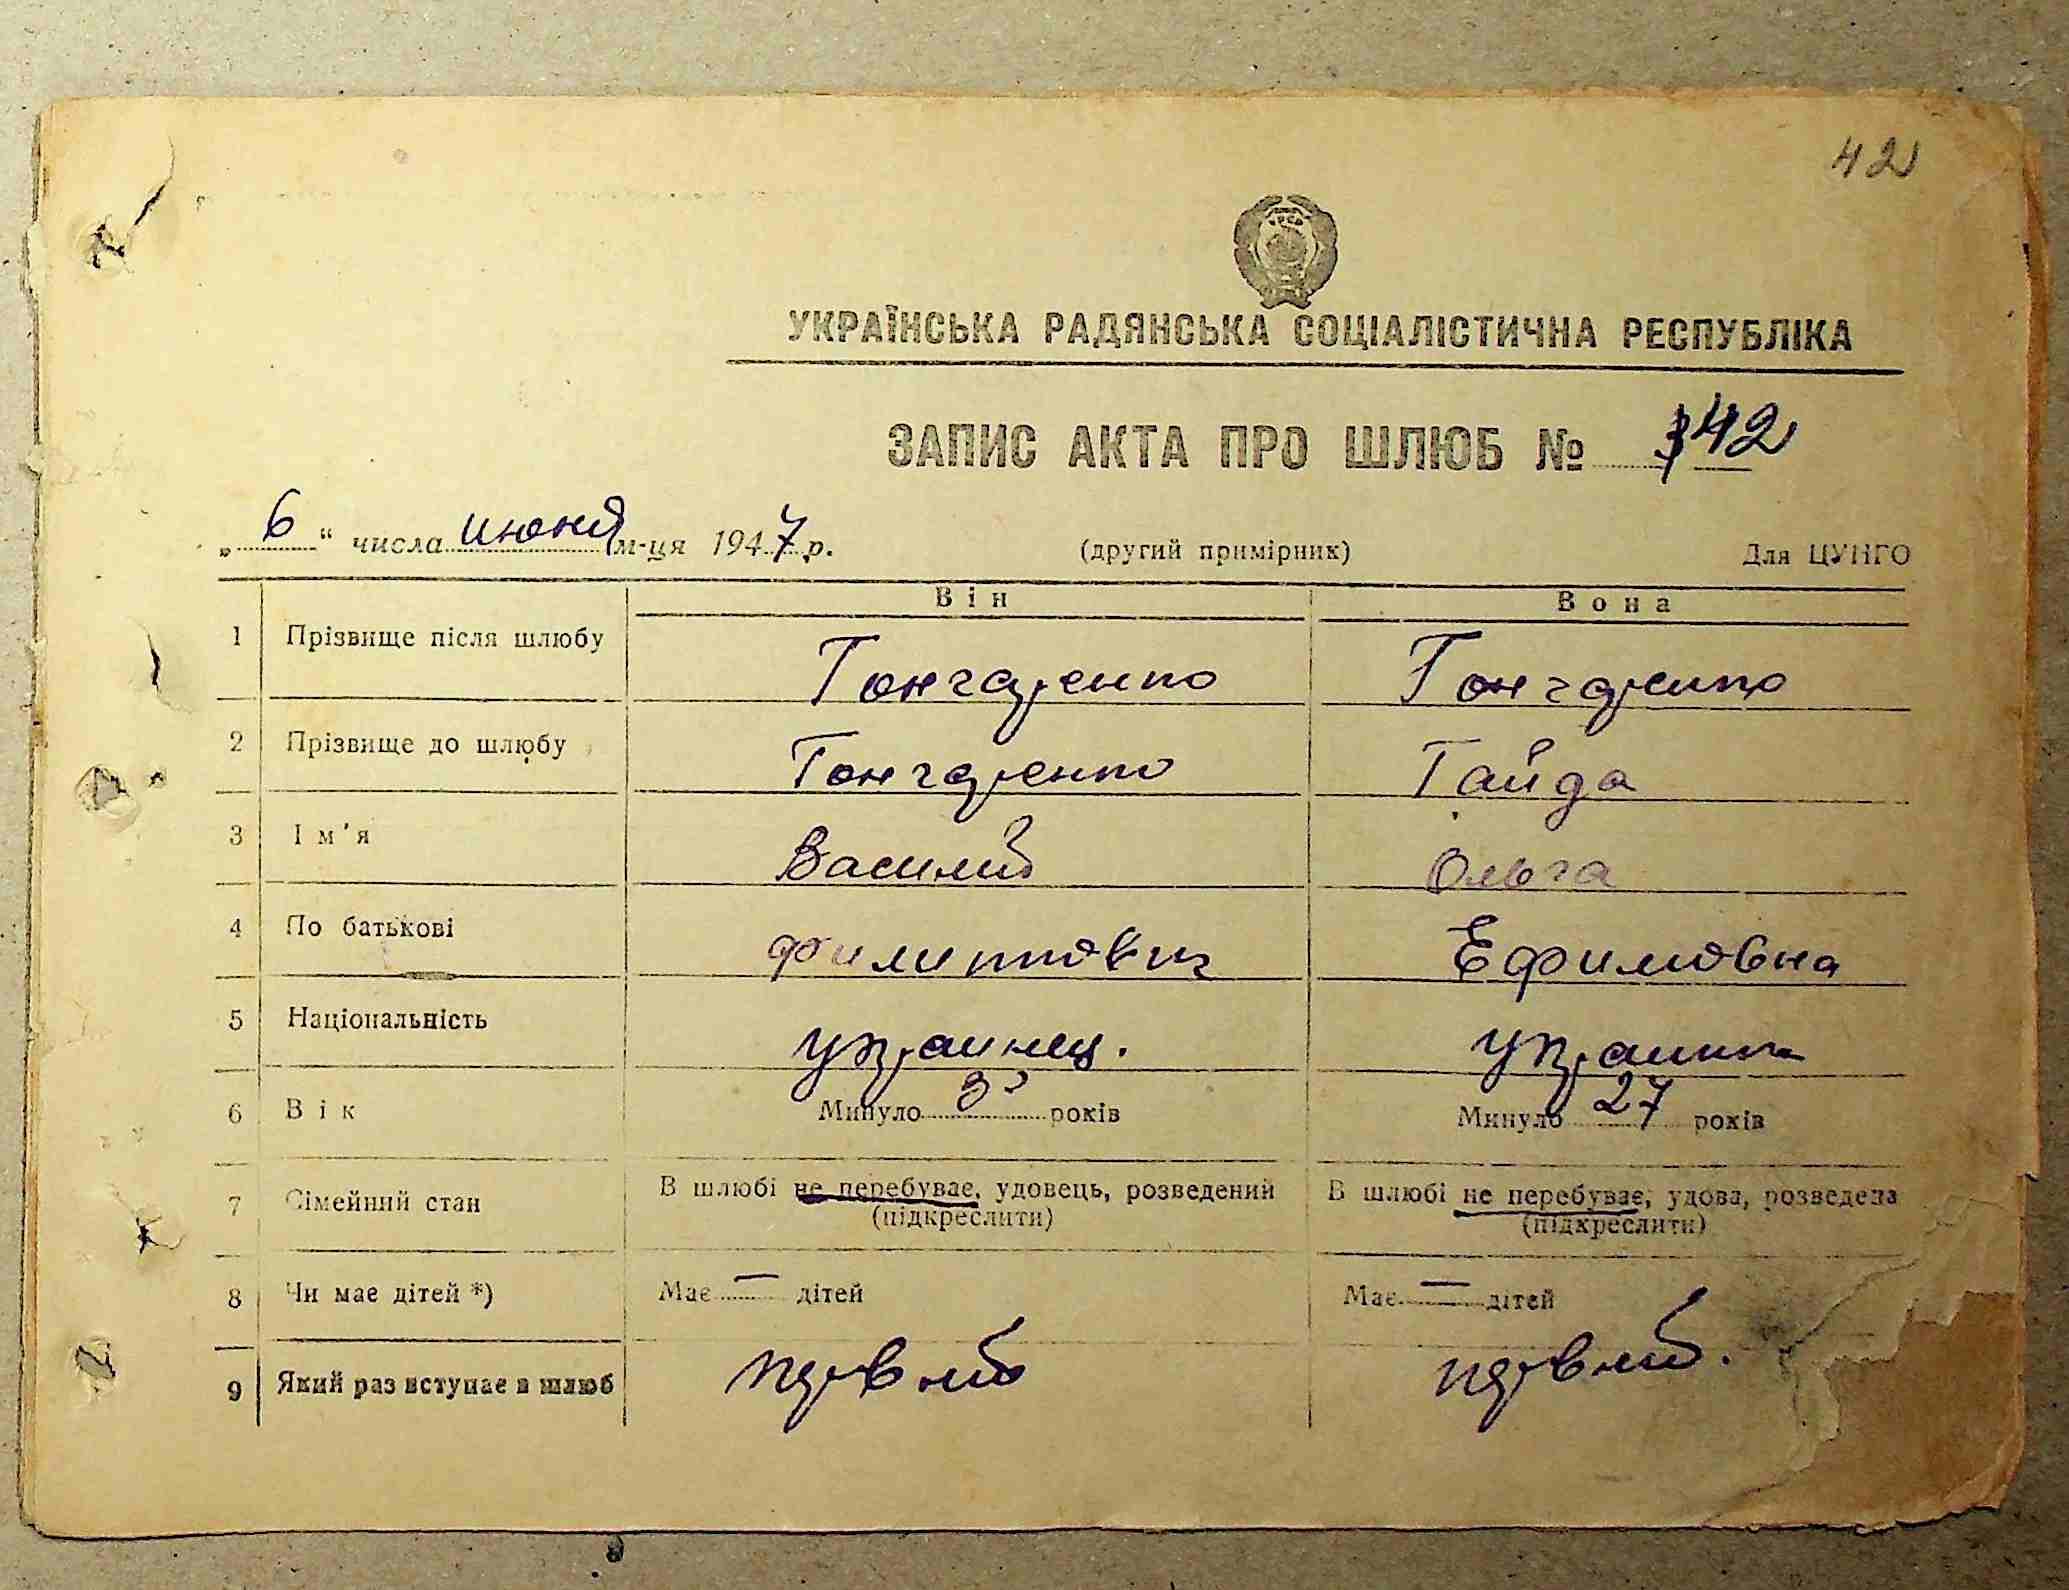 42
УРСР
УКРАЇНСЬКА РАДЯНСЬКА СОЦІАЛІСТИЧНА РЕСПУБЛІКА
ЗАПИС АКТА ПРО ШЛЮБ № 42
„6“ числа июня м-ця 1947 р. (другий примірник) Для ЦУНГО
Він Вона
1 Прізвище після шлюбу Гончаренко Гончаренко
2 Прізвище до шлюбу Гончаренко Гайда
3 Ім'я Василий Ольга
4 По батькові Филиппович Ефимовна
5 Національність украинец. украинка
6 Вік Минуло років Минуло 27 років
7 Сімейний стан В шлюбі не перебуває, удовець, розведений В шлюбі не перебуває, удова, розведена
(підкреслити) (підкреслити)
8 Чи має дітей *) Має — дітей Має — дітей
9 Який раз вступає в шлюб первый первый.